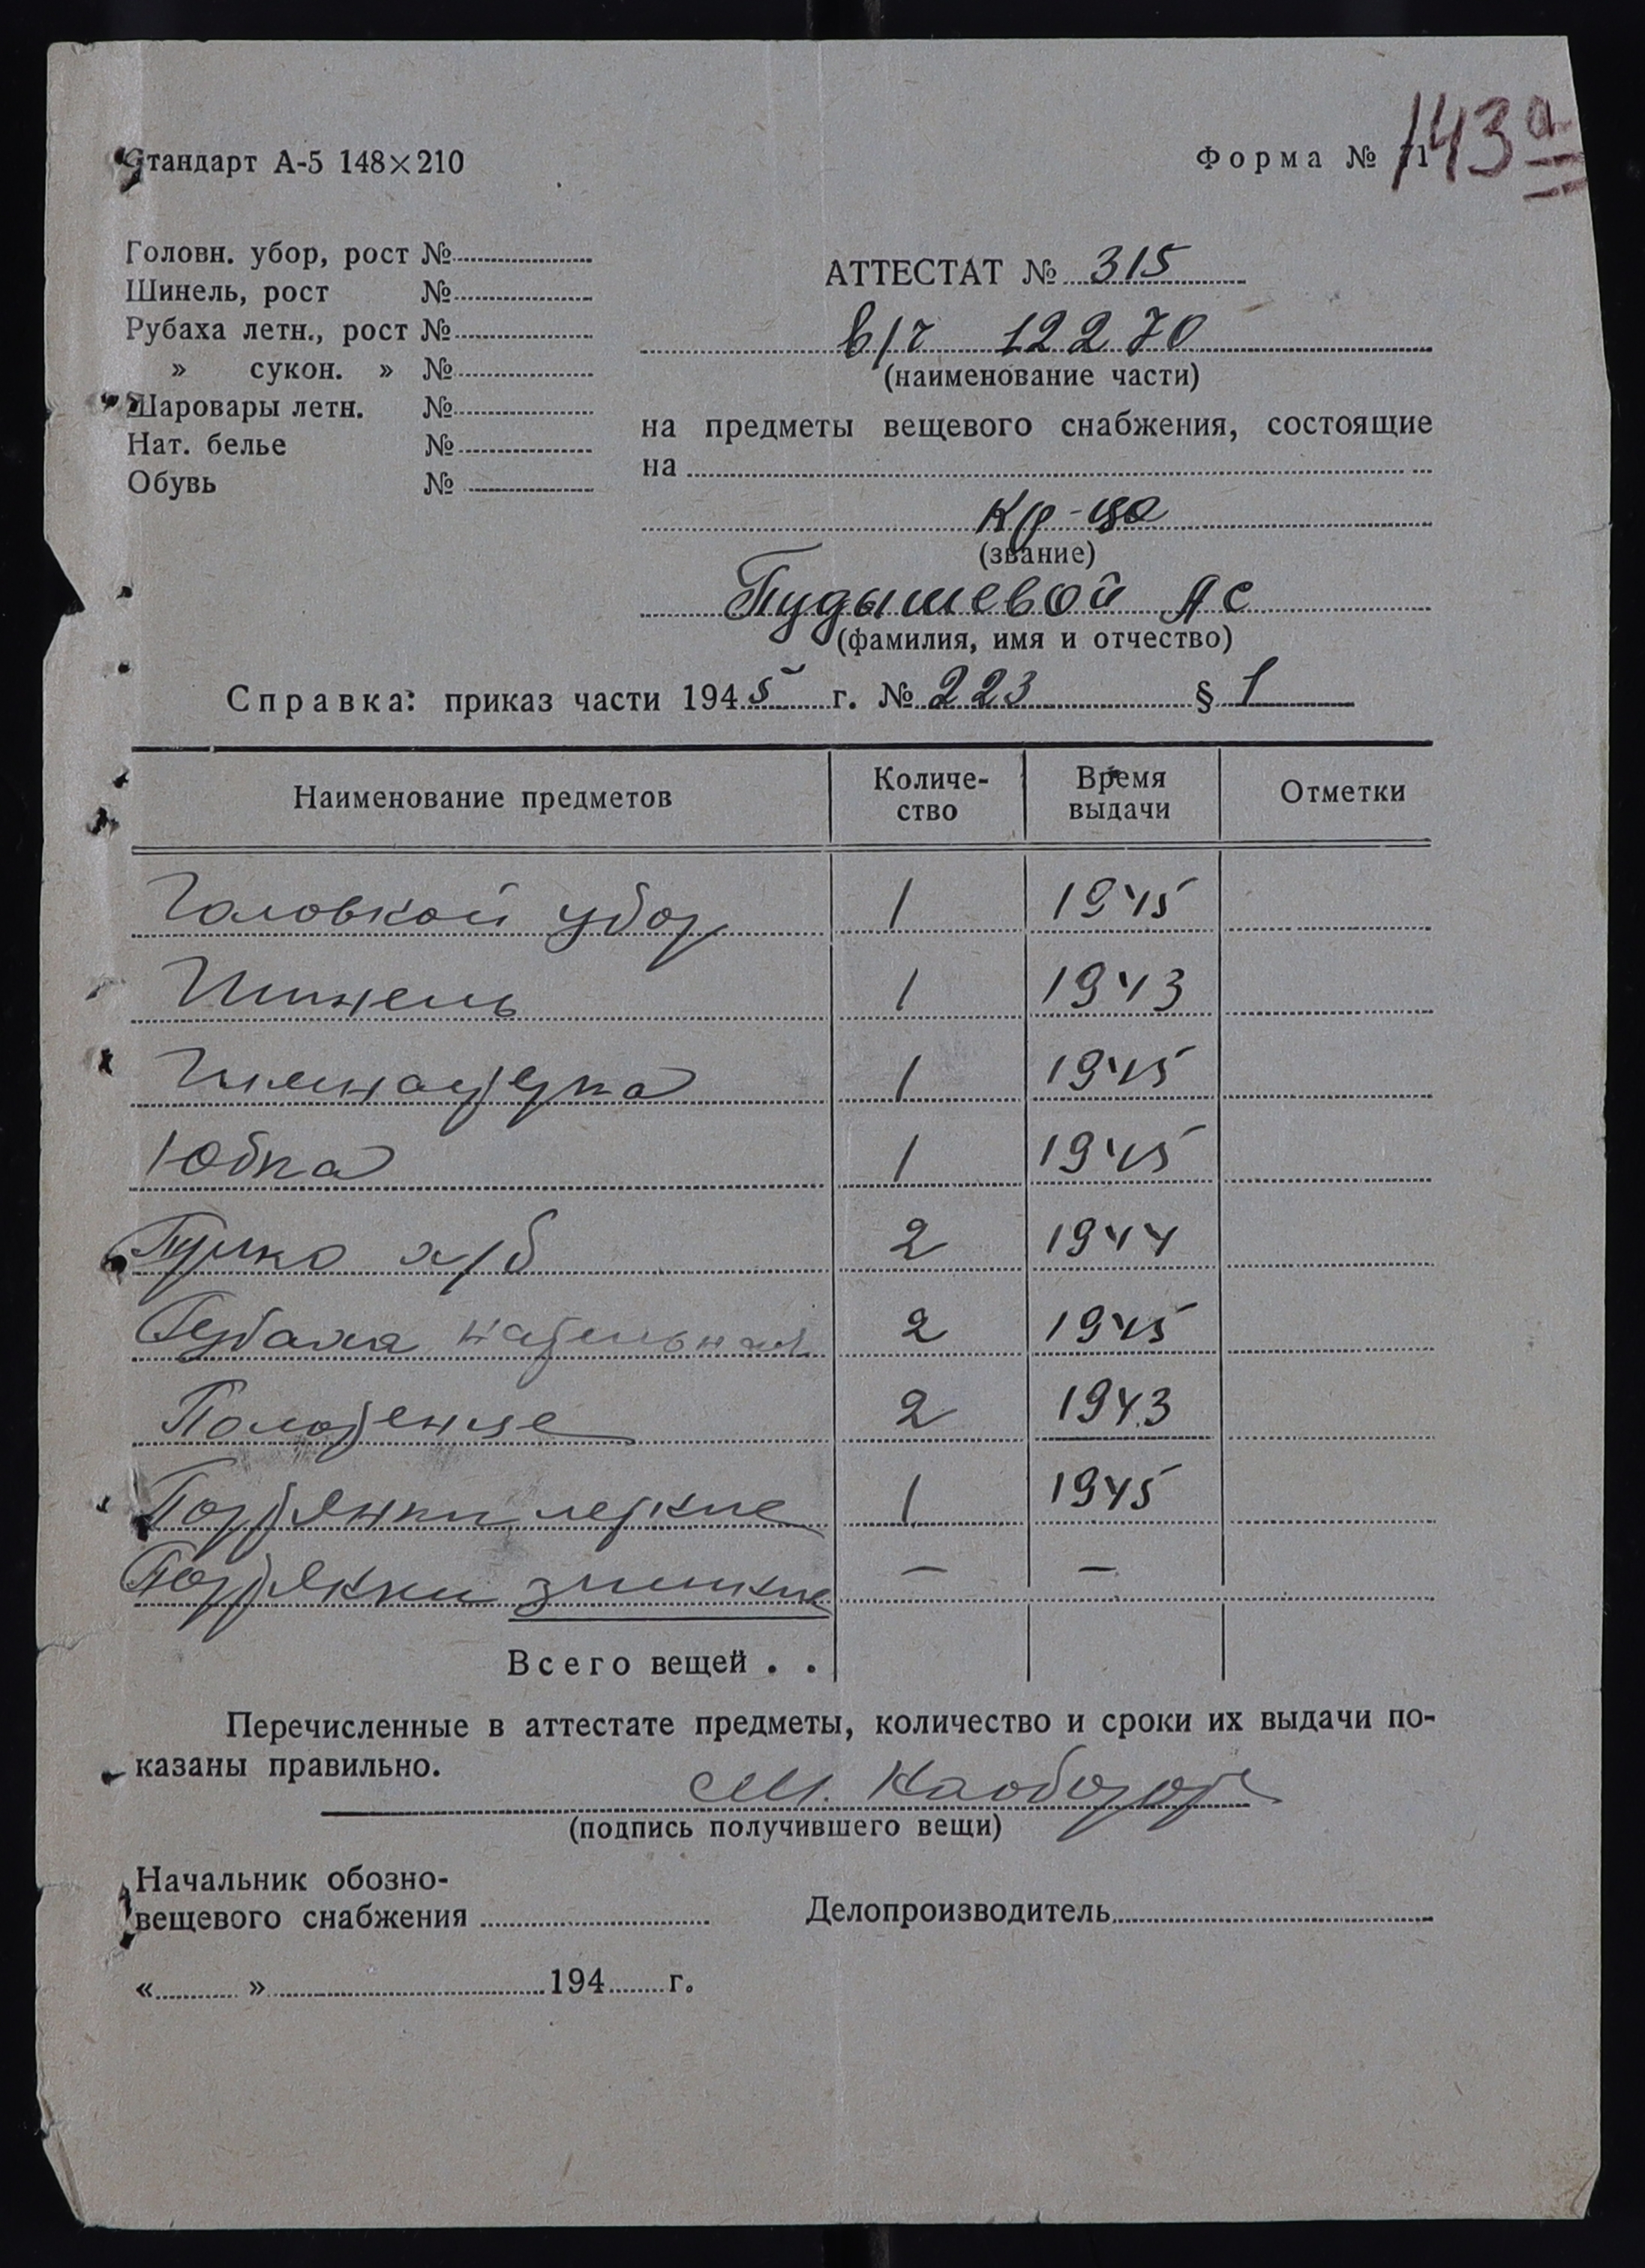 143а
Стандарт А-5 148×210
Форма № 1
Головн. убор, рост №
Шинель, рост №
Рубаха летн., рост №
» сукон. » №
Шаровары летн. №
Нат. белье №
Обувь №
АТТЕСТАТ № 315
в/ч 12270
(наименование части)
на предметы вещевого снабжения, состоящие
на
кр-ца
(звание)
Пудышевой А С
(фамилия, имя и отчество)
Справка: приказ части 1945 г. № 223 § 1
Наименование предметов Количе- Время Отметки
ство выдачи
Головной убор 1 1945
Шинель 1 1943
Гимнастерка 1 1945
Юбка 1 1945
х/б 2 1944
Рубаха нательная 2 1945
Полотенце 2 1943
Портянки летние 1 1945
Портянки зимние — —
Всего вещей . .
Перечисленные в аттестате предметы, количество и сроки их выдачи по-
казаны правильно.
(подпись получившего вещи)
Начальник обозно-
вещевого снабжения
Делопроизводитель
« » 194 г.